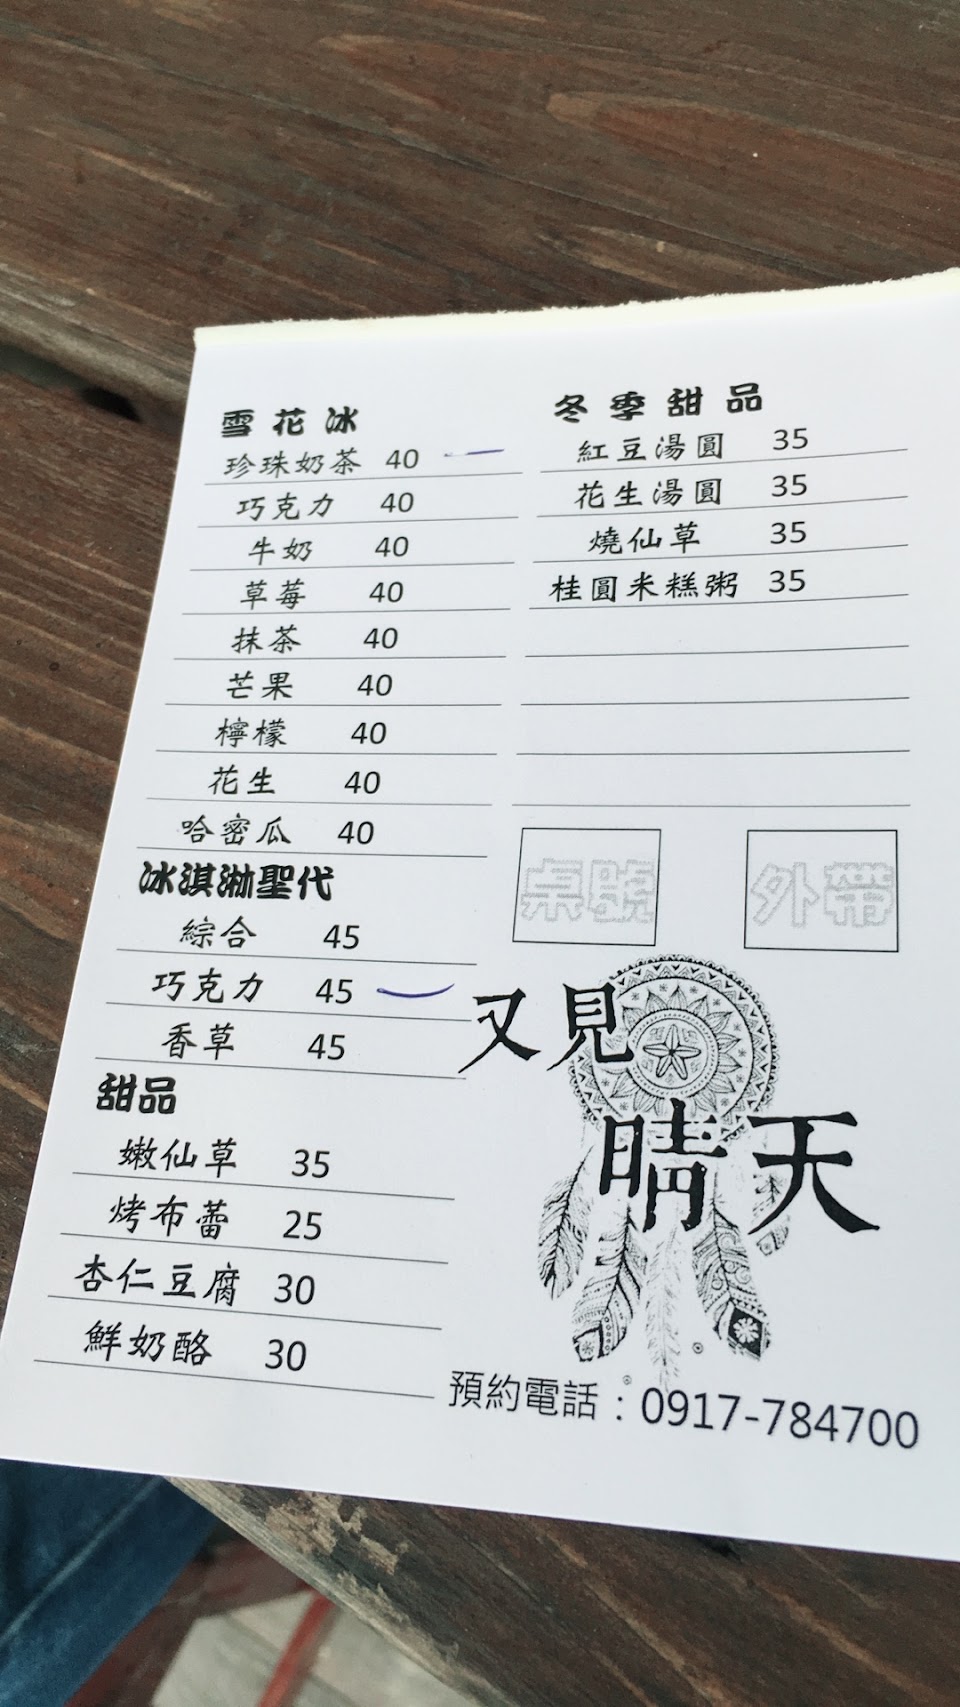 雪花冰
珍珠奶茶 40
巧克力 40
牛奶 40
草莓 40
抹茶 40
芒果 40
檸檬 40
花生 40
哈密瓜 40
冰淇淋聖代
綜合 45
巧克力 45
香草 45
甜品
嫩仙草 35
烤布蕾 25
杏仁豆腐 30
鮮奶酪 30
冬季甜品
紅豆湯圓 35
花生湯圓 35
燒仙草 35
桂圓米糕粥 35
桌號
外帶
又見
晴天
預約電話：0917-784700